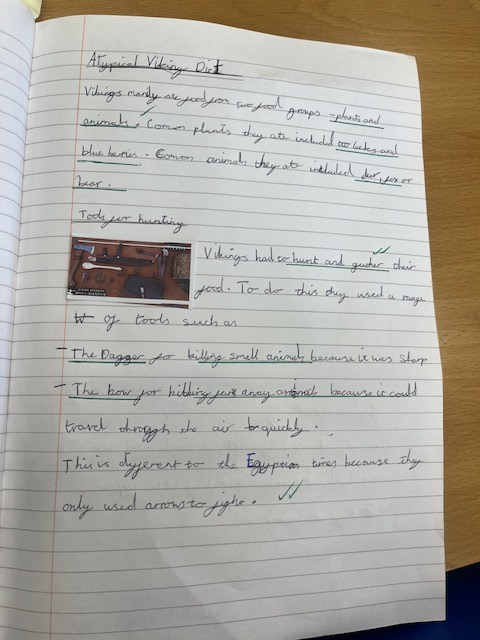 Atypical Viking Diet
Vikings manly ate food from two food groups - plants and
animals. Comon plants they ate included and
blueberries. Comon animals they ate included deer, fox or
bear.
Tools for hunting
Vikings had to hunt and gather their
food. To do this they used a range
of tools such as
- The Dagger for killing small animals because it was sharp
- The bow for killing far away because it could
travel through the air quickly.
This is different to the times because they
only used arrows to fight.